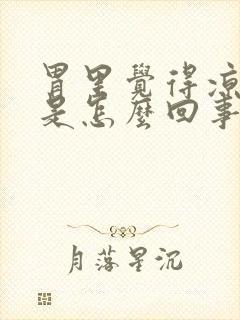 胃里覺得涼
是怎麼回事
月落星沉